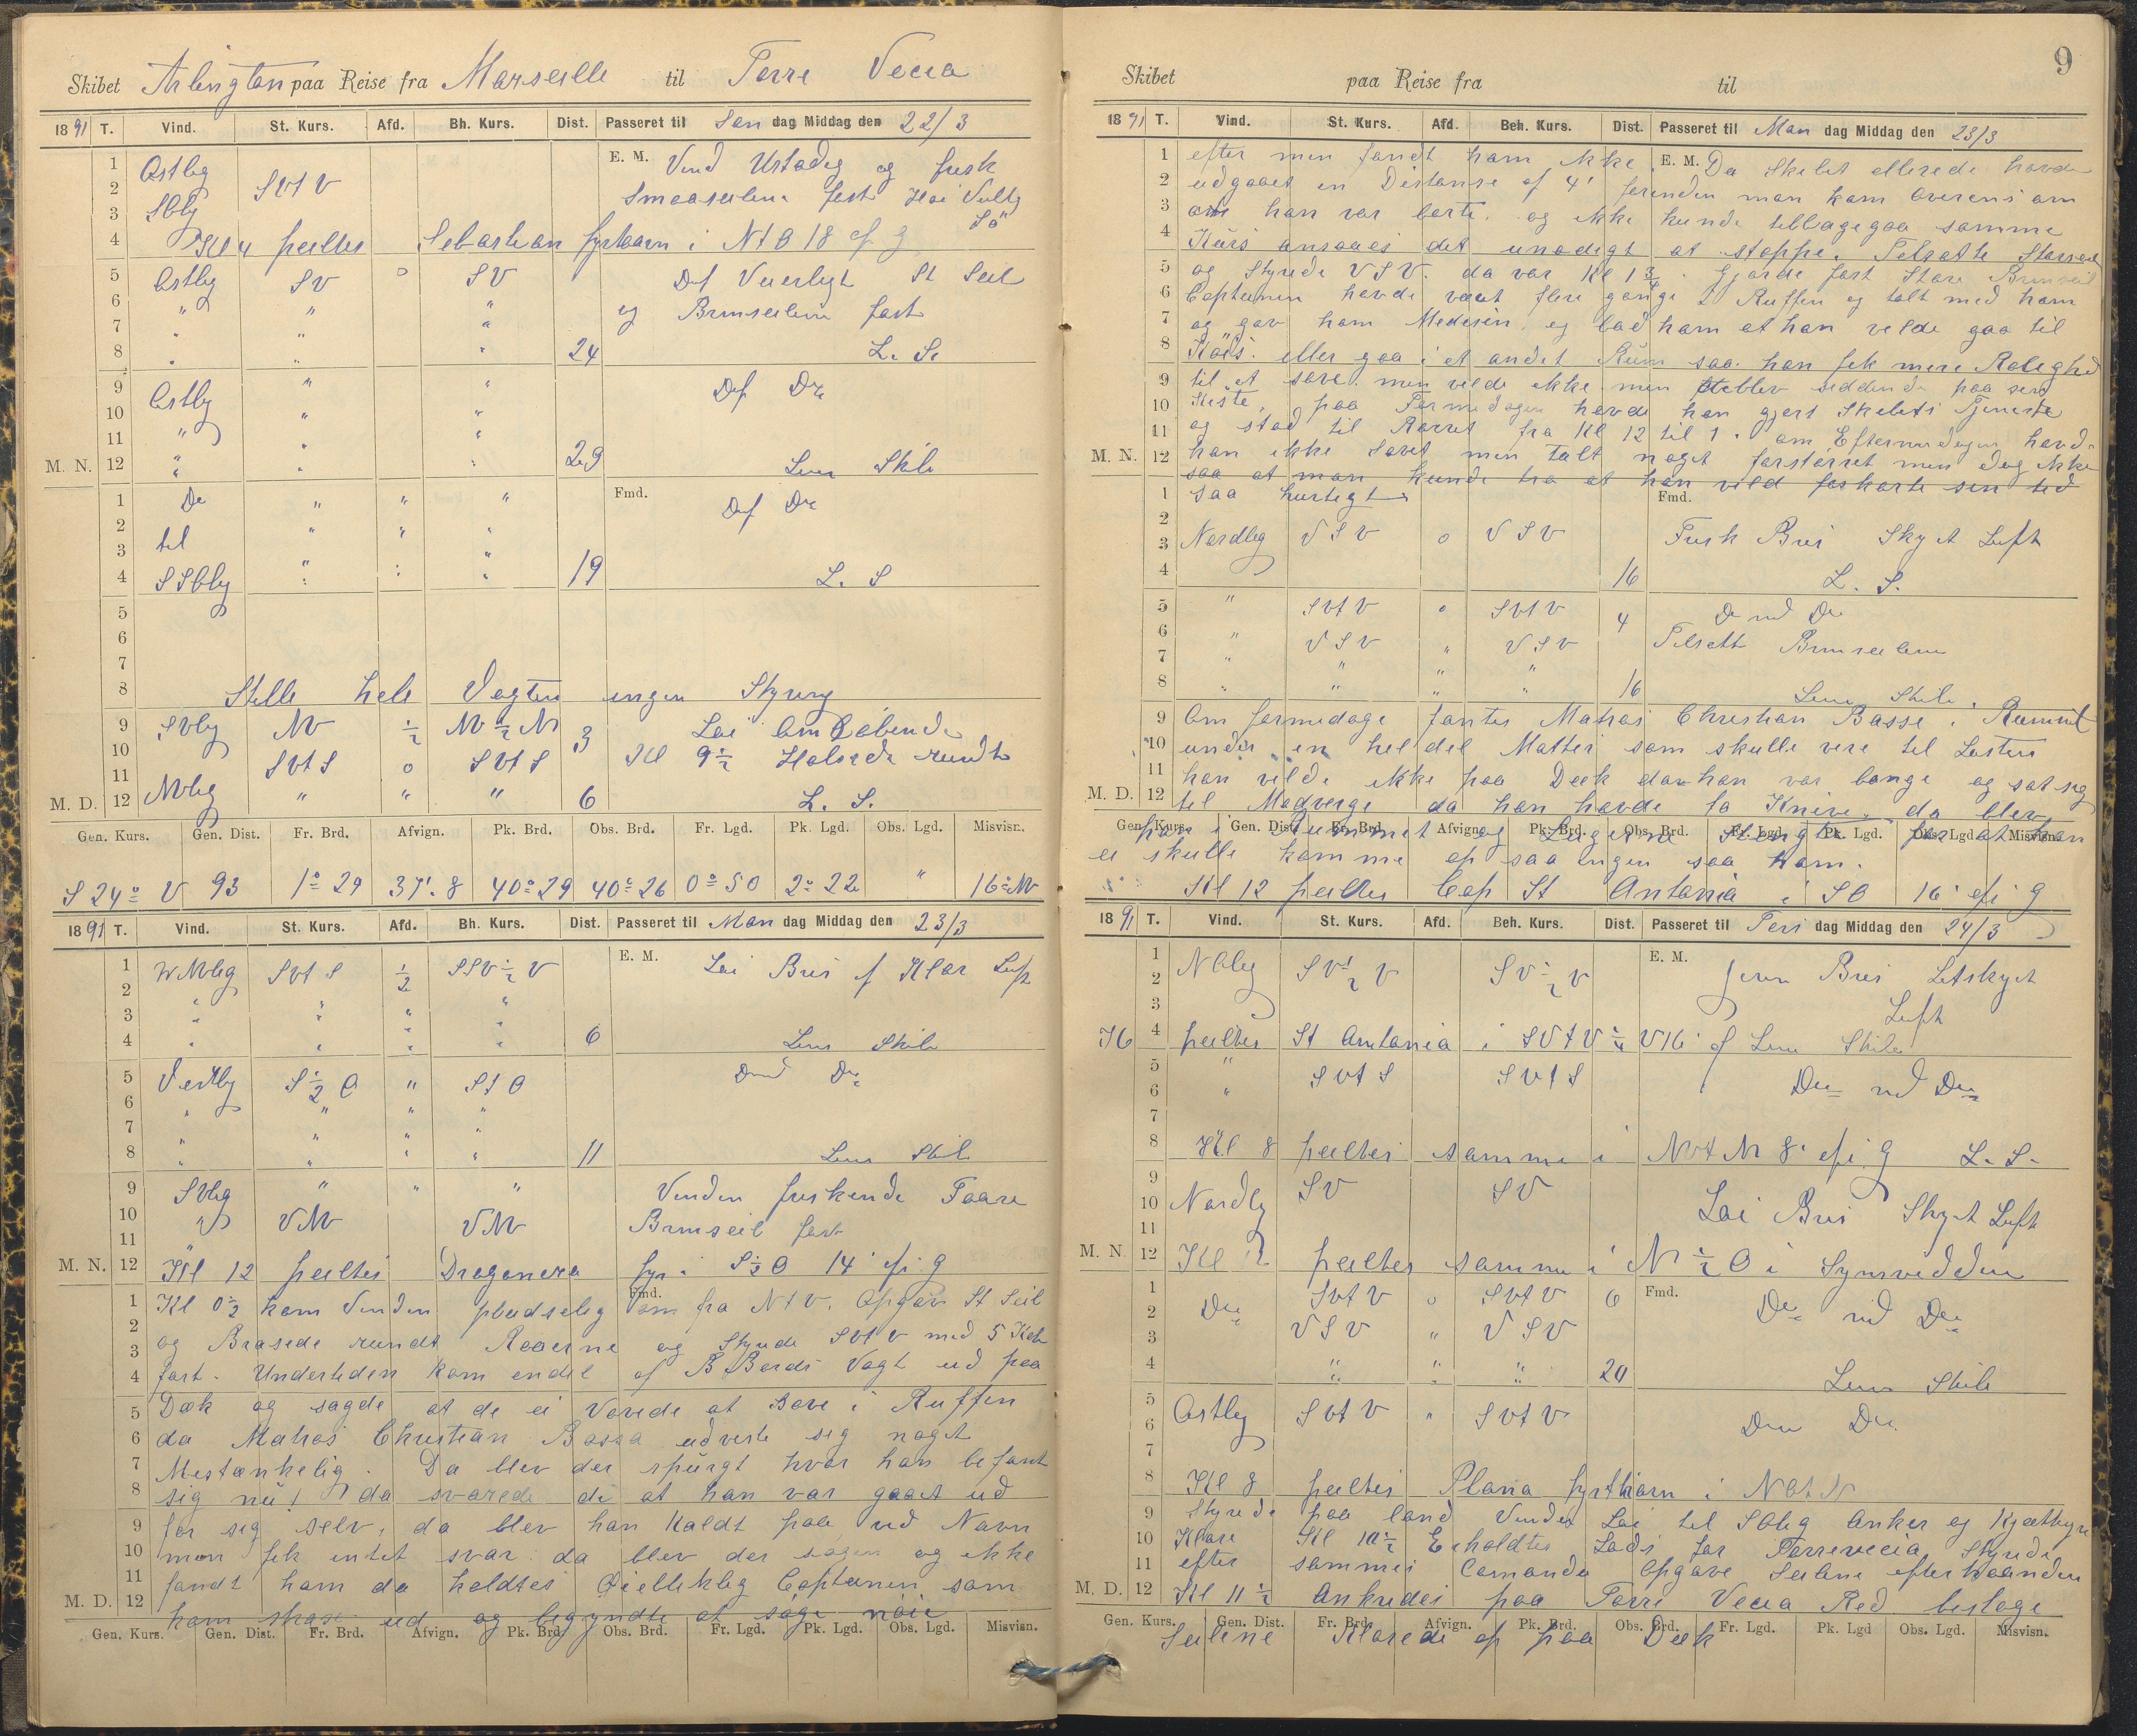 Skibet Arlington paa Reise fra Marseille til Torre Vecia
1891 T. Vind. St. Kurs. Afd. Bh. Kurs. Dist. Passeret til Søn dag Middag den 22/3
1 Ostlig E. M. Vind Ustadig og frisk
2 SVtV Smaaseilene fast
3 SOlig
4 Kl 4 peiltes Sebastian fyrtaarn i NtO 18 af g
5 Ostlig SV o SV Def Veirligt St Seil
6 " " " og Bramseilene fast
7 " " "
8 " " " 24 L. S.
9 Ostlig " " Def Do
10 " "
11 " " "
M. N. 12 " " " 29 Lens Skib
1 Do " " " Fmd. Def Do
2 til " " "
3 "
4 SSOlig " " " 19 L. S
5
6
7
8 Stille hele Vagten ingen Styring
9 SVlig NV ½ NV½N 3 Lei Omløbende
10 SVtS o SVtS Kl 9½ Halsede rundt
11 NVlig
M. D. 12 " " " 6 L. S.
Gen. Kurs. Gen. Dist. Fr. Brd. Afvign. Pk. Brd. Obs. Brd. Fr. Lgd. Pk. Lgd. Obs. Lgd. Misvisn.
S 24° V 93 1° 29 37'.8 40° 29 40° 26 0° 50 2° 22 " 16° NV
1891 T. Vind. St. Kurs. Afd. Bh. Kurs. Dist. Passeret til Man dag Middag den 23/3
1 VNVlig SVtS ½ SSV½V E. M. Lei Bris og Klar Luft
2 " " " "
3 " " " "
4 " " " " 6 Lens Skib
5 Vestlig S½O " StO Do ved Do
6 " " " "
7 " " " "
8 " " " " 11 Lens Skib
9 SVlig " " " Vinden friskende Faare
10 " VNV VNV Bramseil fast
11
M. N. 12 Kl 12 peiltes Dragonera fyr i S½O 14' af g
1 Kl 0½ kom Vinden pludselig om fra NtV. Opgav St Seil Fmd.
2 og Brasede rundt Raaerne og Styrede SVtV med 5 Kob
3 fart. Undertiden kom endel af B Bords Vagt ud paa
4 Dæk og sagde at de ei Vovede at sove i Ruffen
5 da Matros Christian Bassa udviste seg noget
6 Mestænkelig. Da blev der spurgt hvor han befant
7 sig nu! da svarede de at han var gaaet ud
8 for seg selv, da blev han kaldt paa ved Navn
9 men fik intet svar da blev der søgen og ikke
10 fandt ham da holdtes Øiellikleg Captainen som
11 kom strax ud og begyndte at søge nøie
M. D. 12
Gen. Kurs. Gen. Dist. Fr. Brd. Afvign. Pk. Brd. Obs. Brd. Fr. Lgd. Pk. Lgd. Obs. Lgd. Misvisn.
9
Skibet paa Reise fra til
1891 T. Vind. St. Kurs. Afd. Beh. Kurs. Dist. Passeret til Man dag Middag den 23/3
1 efter men fandt ham ikke. E. M. Da Skibet allerede havde
2 udgaaet en Distanse af 4' forinden man kom overens om
3 om han var borte. og ikke kunde tilbagegaa samme
4 Kurs ansaaes det unødigt at stoppe. Tilsatte Storseil
5 og Styrede VSV. da var Kl 1¾. Gjorde fast Store Bramseil
6 Captainen havde været flere gange i Ruffen og talt med ham
7 og gav ham Medesin, og bad ham at han vilde gaa til
8 Køis. eller gaa i et andet Rum saa han fik mere Rolighed
9 til at sove. men vilde ikke. men blev seddende paa sin
10 Kiste, paa Formedagen havde han gjort Skibets Tjeneste
11 og stod til Rorret fra Kl 12 til 1. om Eftermedagen havde
M. N. 12 han ikke Sovet men talt noget forstørret men dog ikke
saa at man kunde tro at han vild forkorte sen tid
1 saa hurtigt Fmd.
2
3 Nordlig VSV o VSV Frisk Bris Skyet Luft
4 16 L. S.
5 " SVtV o SVtV 4 Do ved Do
6 " VSV " VSV Tilsatt Bramseilene
7 " " " "
8 " " " " 16 Lens Skib.
9 Om formedage fantes Matros Christian Basse i Rummet
10 under en hel del Matter som skulle vere til Lasten
11 han vilde ikke paa Dæk da han var bange og sat seg
M. D. 12 til Modverge da han havde to Knive. da blev
Gen. Kurs. Gen. Dist. Fr. Brd. Afvign. Pk. Brd. Obs. Brd. Fr. Lgd. Pk. Lgd. Obs. Lgd. Misvisn.
han i Rummet og Lugerne Stengte for at han
ei skulle komme op saa ingen saa ham.
Kl 12 peiltes Cap St Antonia i SO 16' af g
1891 T. Vind. St. Kurs. Afd. Beh. Kurs. Dist. Passeret til Tirs dag Middag den 24/3
1 NOlig SV½V SV½V E. M. Jevn Bris Letskyet
2
3 Luft
4 peiltes St Antonia i SVtV½V 16' af Lens Skib
5 " SVtS SVtS Do ved Do
6 "
7
8 Kl 8 peiltes samme i NVtN 8' af g L. S.
9
10 Nordlig SV SV Lei Bris Skyet Luft
11
M. N. 12 Kl 12 peiltes samme i N½O i Synsvidden
1 Do SVtV o SVtV 6 Fmd. Do ved Do
2 VSV " VSV
3
4 " " " 20 Lens Skib
5 Ostlig SVtV " SVtV
6 Do Do
7
8 Kl 8 peiltes Plana fyrtaarn i NOtN
9 Styrede paa land Vinden Lei til SOlig Anker og Kjættinger
10 Klare Kl 10½ Erholdtes Lods for Torrevecia Styrede
11 efter sammes Comando Opgave Seilene efterhaanden
M. D. 12 Kl 11½ Ankredes paa Torre Vecia Red beslage
Gen. Kurs. Gen. Dist. Fr. Brd. Afvign. Pk. Brd. Obs. Brd. Fr. Lgd. Pk. Lgd Obs. Lgd. Misvisn.
Seilene Klarede op paa Dæk